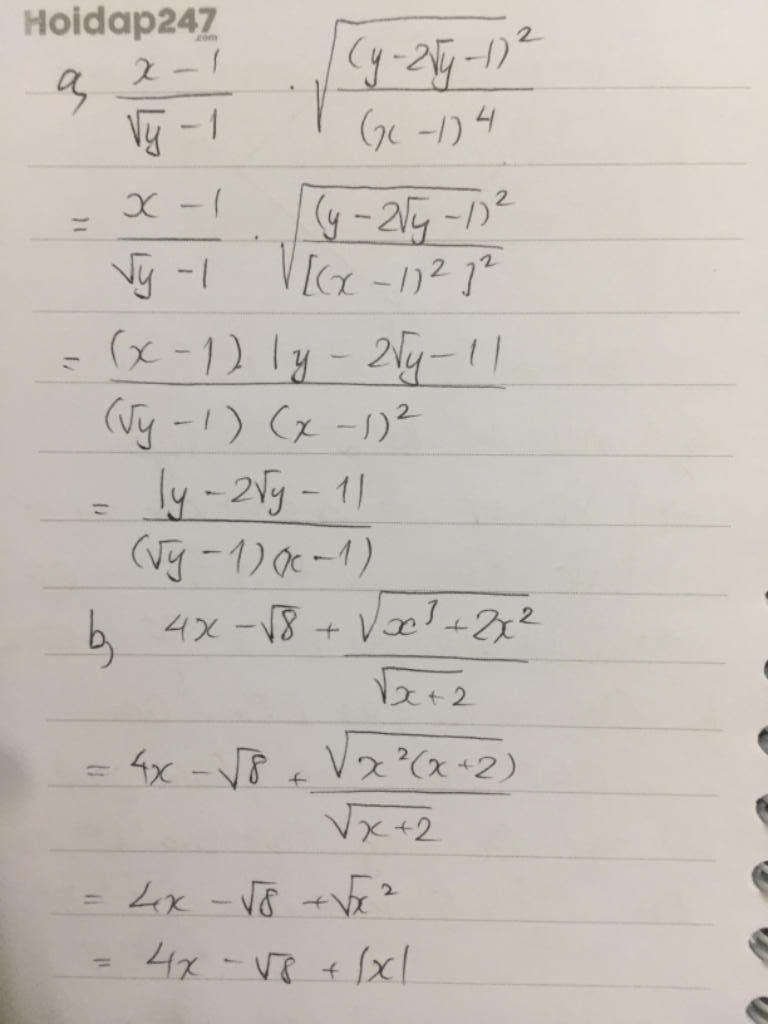 Hoidap247
.com
a, (x - 1)/(√y - 1) · √((y - 2√y - 1)²/(x - 1)⁴)
= (x - 1)/(√y - 1) · √((y - 2√y - 1)²/[(x - 1)²]²)
= ((x - 1) |y - 2√y - 1|)/((√y - 1) (x - 1)²)
= |y - 2√y - 1|/((√y - 1)(x - 1))
b, 4x - √8 + √(x³ + 2x²)/√(x + 2)
= 4x - √8 + √(x²(x + 2))/√(x + 2)
= 4x - √8 + √x²
= 4x - √8 + |x|